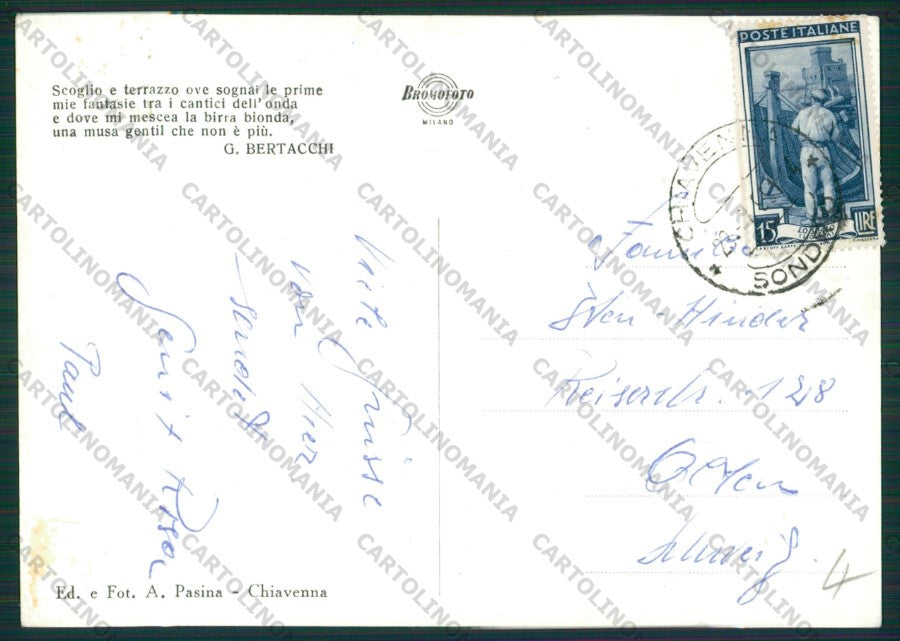 Scoglio e terrazzo ove sognai le prime
mie fantasie tra i cantici dell'onda
e dove mi mescea la birra bionda,
una musa gentil che non è più.
G. BERTACCHI
BROMOFOTO
MILANO
POSTE ITALIANE
15 LIRE
CHIAVENNA
SONDRIO
Viele Grüsse
von hier
sendet
Paul
Familie
Reiserstr. 128
Olten
Schweiz.
4
Ed. e Fot. A. Pasina - Chiavenna
CARTOLINOMANIA